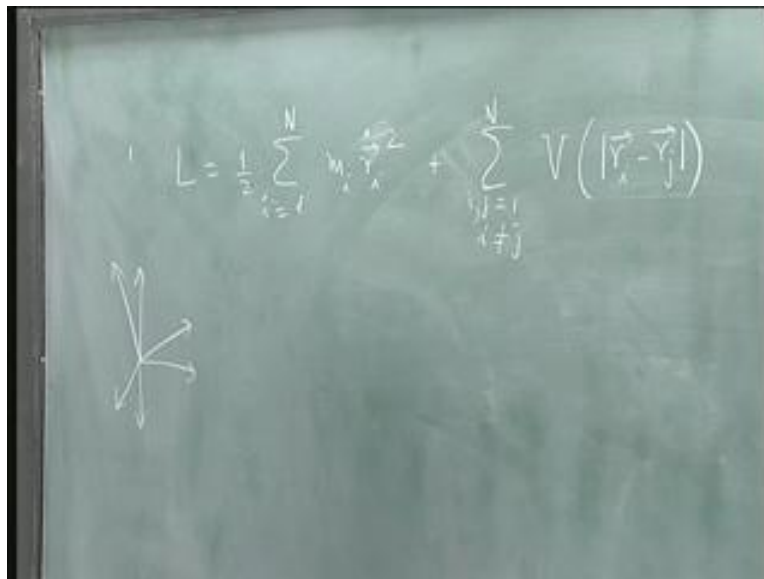 L = \frac{1}{2} \sum_{i=1}^{N} m_i \dot{\vec{r}}_i^2 + \sum_{\substack{i,j=1 \\ i \neq j}}^{N} V(|\vec{r}_i - \vec{r}_j|)